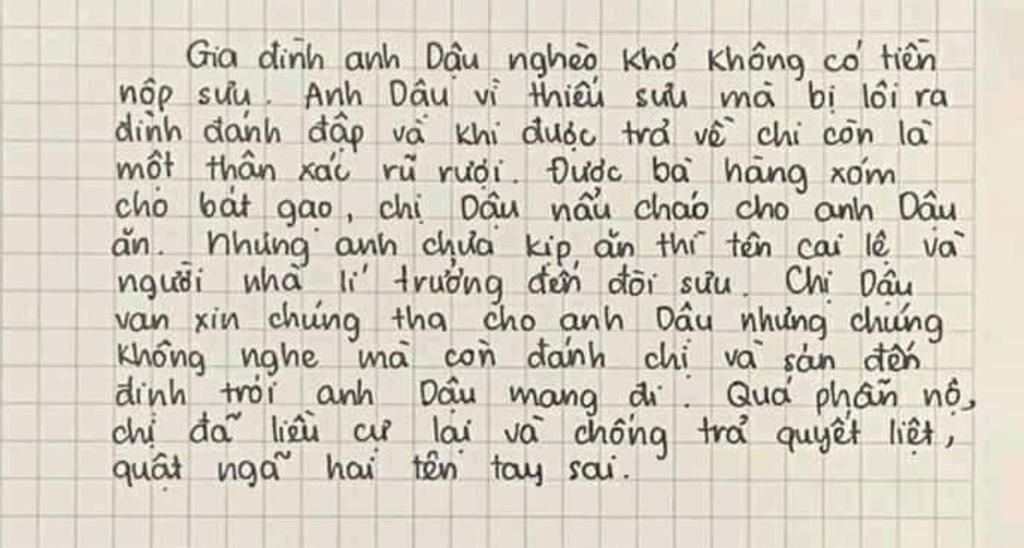 Gia đình anh Dậu nghèo khó không có tiền
nộp sưu. Anh Dậu vì thiếu sưu mà bị lôi ra
đình đánh đập và khi được trả về chỉ còn là
một thân xác rũ rượi. Được bà hàng xóm
cho bát gạo, chị Dậu nấu cháo cho anh Dậu
ăn. Nhưng anh chưa kịp ăn thì tên cai lệ và
người nhà lí trưởng đến đòi sưu. Chị Dậu
van xin chúng tha cho anh Dậu nhưng chúng
không nghe mà còn đánh chị và sán đến
định trói anh Dậu mang đi. Quá phẫn nộ,
chị đã liều cự lại và chống trả quyết liệt,
quật ngã hai tên tay sai.